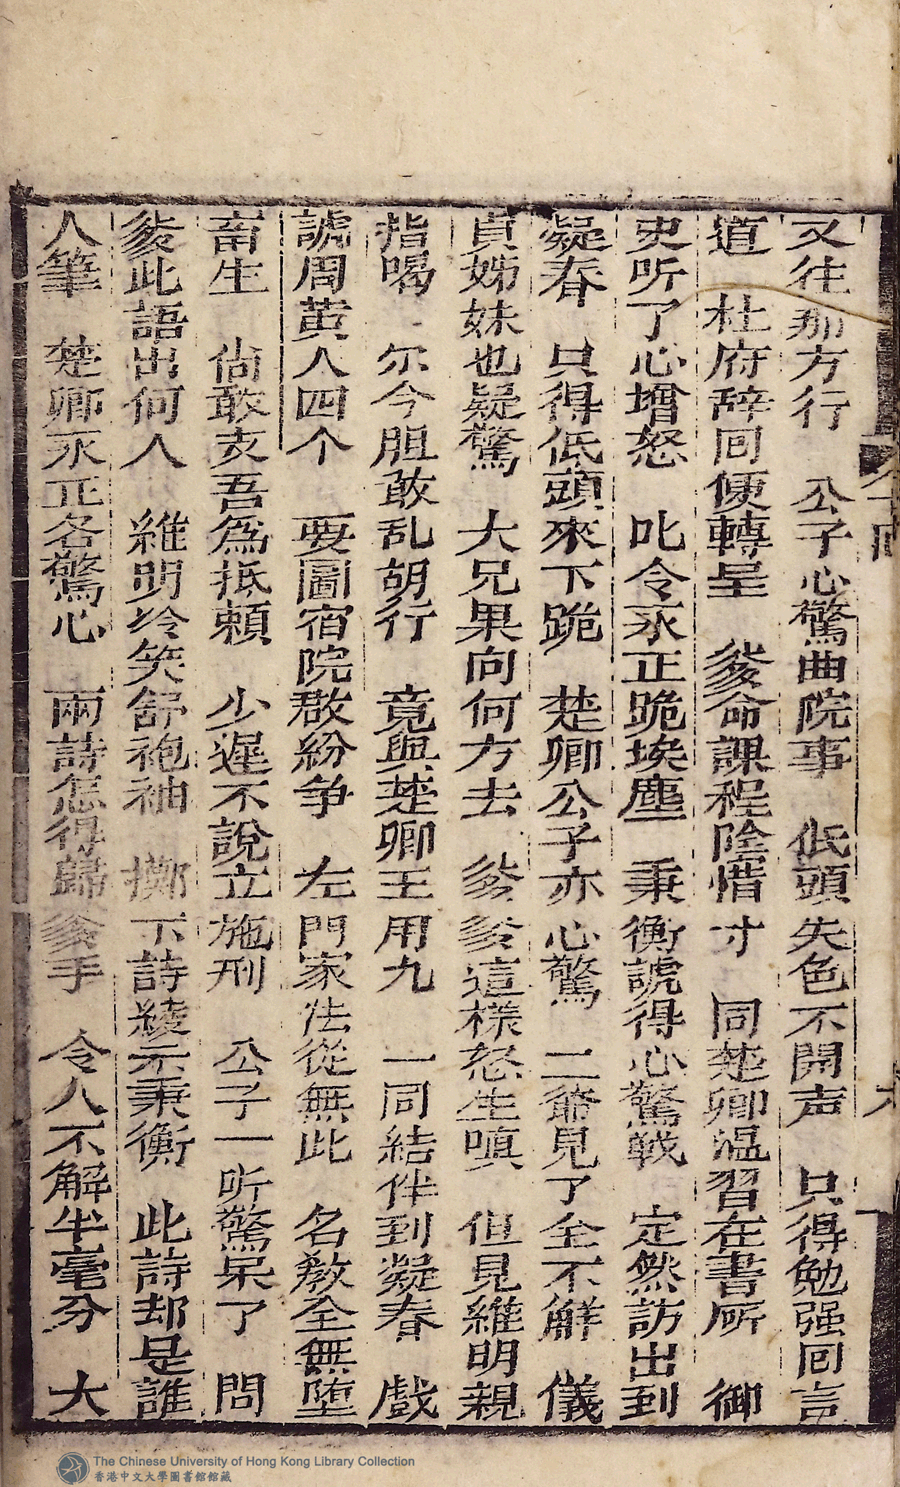 又往那方行　公子心驚曲院事　低頭失色不開声　只得勉强回言
道　杜府辞回便轉呈　爹命課程陰惜寸　同楚卿温習在書所　御
吏听了心增怒　叱令永正跪埃塵　秉衡諕得心驚戰　定然訪出到
凝春　只得低頭來下跪　楚卿公子亦心驚　二爺見了全不觧　儀
貞姊妹也疑驚　大兄果向何方去　爹爹這樣怒生嗔　但見維明親
指喝　尔今胆敢乱胡行　竟與楚卿王用九　一同結伴到凝春　戲
諕周黄人四个　要圖宿院啟紛争　左門家法從無此　名教全無堕
畜生　尚敢支吾為抵頼　少遲不說立施刑　公子一听驚呆了　問
爹此語出何人　維明冷笑舒袍袖　擲下詩綾示秉衡　此詩却是誰
人筆　楚卿永正各驚心　兩詩怎得歸爹手　令人不解半毫分　大
The Chinese University of Hong Kong Library Collection
香港中文大學圖書館館藏